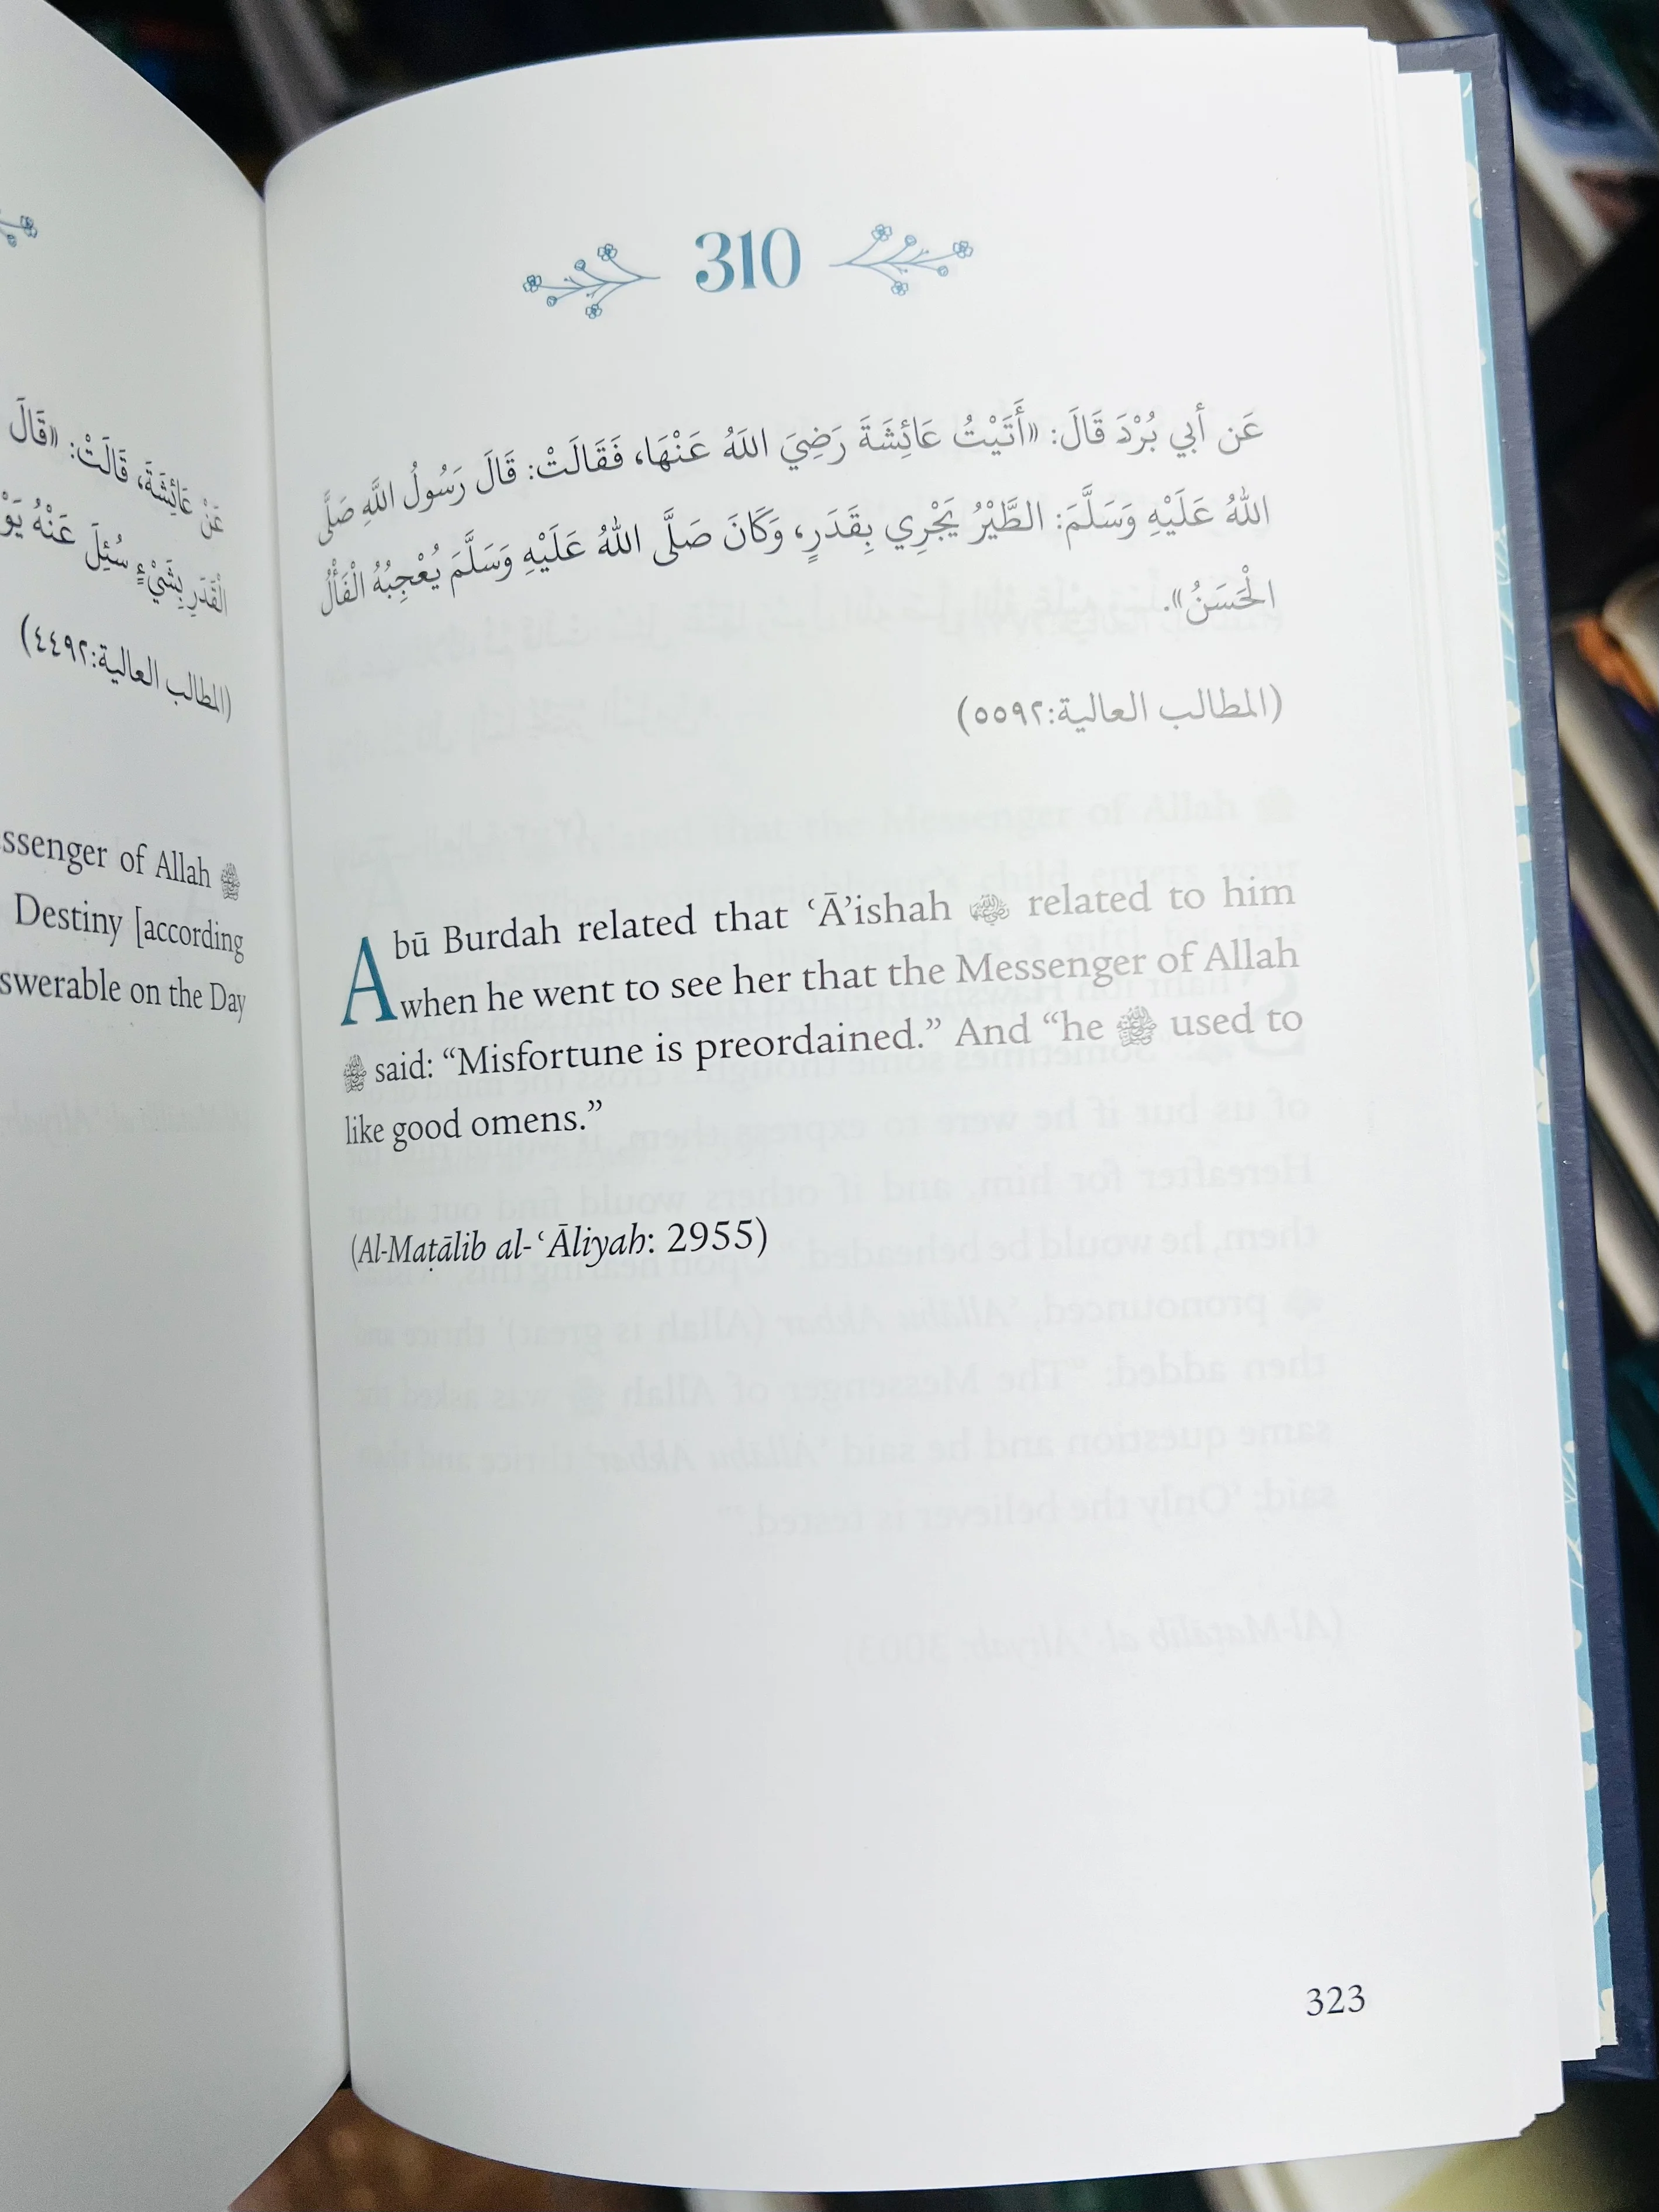 عَنْ عَائِشَةَ، قَالَتْ: «قَالَ
الْقَدَرِ بِشَيْءٍ سُئِلَ عَنْهُ يَوْ
(المطالب العالية:٤٤٩٢)
ssenger of Allah ﷺ
Destiny [according
swerable on the Day
310
عَن أبي بُرْدَ قَالَ: «أَتَيْتُ عَائِشَةَ رَضِيَ اللَهُ عَنْهَا، فَقَالَتْ: قَالَ رَسُولُ اللَّهِ صَلَّى
اللهُ عَلَيْهِ وَسَلَّمَ: الطَّيْرُ يَجْرِي بِقَدَرٍ، وَكَانَ صَلَّى اللهُ عَلَيْهِ وَسَلَّمَ يُعْجِبُهُ الْفَأْلُ
الْحَسَنُ».
(المطالب العالية:٥٥٩٢)
Abū Burdah related that ʿĀ’ishah related to him
when he went to see her that the Messenger of Allah
ﷺ said: “Misfortune is preordained.” And “he ﷺ used to
like good omens.”
(Al-Maṭālib al-ʿĀliyah: 2955)
323